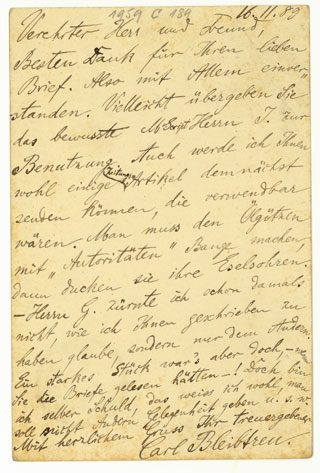 1959 C 189
16.11.89
Verehrter Herr und Freund,
Besten Dank für Ihren lieben
Brief. Also mit Allem einver-
standen. Vielleicht übergeben Sie
das bewusste Mscript Herrn J. zur
Benutzung. Auch werde ich Ihnen
wohl einige Zeitungs-Artikel demnächst
senden können, die verwendbar
wären. Man muss den Ölgötzen
mit „Autoritäten" Bange machen,
dann ducken sie ihre Eselsohren.
– Herrn G. zürnte ich schon damals
nicht, wie ich Ihnen geschrieben zu
haben glaube, sondern nur dem Andern.
Ein starkes Stück war's aber doch, –
Sie die Briefe gelesen hätten –! Doch bin
ich selber Schuld, das weiss ich wohl, man
soll nicht Andern Gelegenheit geben u. s. w.
Mit herzlichem Gruss Ihr treuergebener
Carl Bleibtreu.